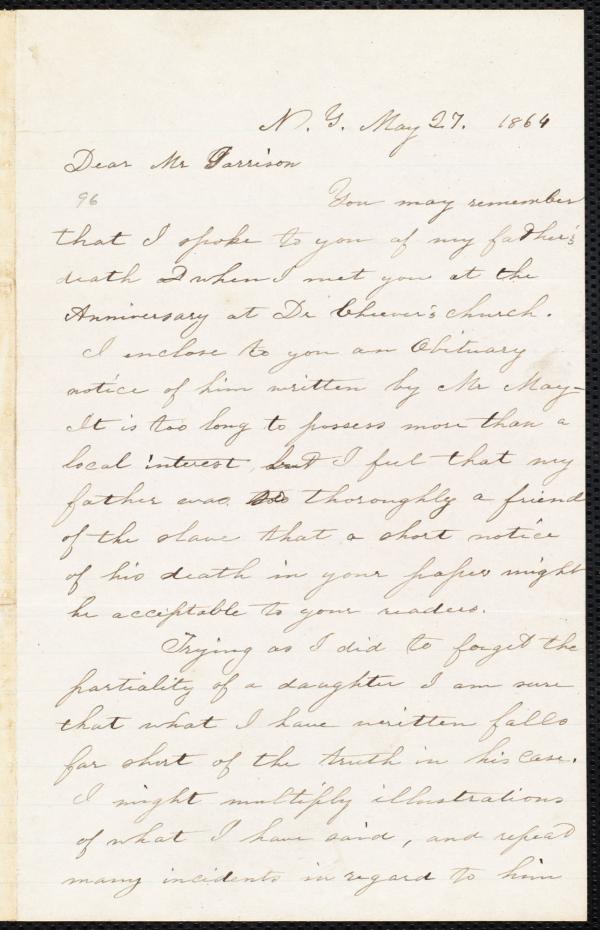 N. Y. May 27. 1864
Dear Mr Garrison
96 You may remember
that I spoke to you of my father's
death when I met you at the
Anniversary at Dr Cheever's church.
I enclose to you an Obituary
notice of him written by Mr May-
It is too long to possess more than a
local interest, but I feel that my
father was so thoroughly a friend
of the slave that a short notice
of his death in your paper might
be acceptable to your readers.
Trying as I did to forget the
partiality of a daughter I am sure
that what I have written falls
far short of the truth in his case.
I might multiply illustrations
of what I have said, and repeat
many incidents in regard to him